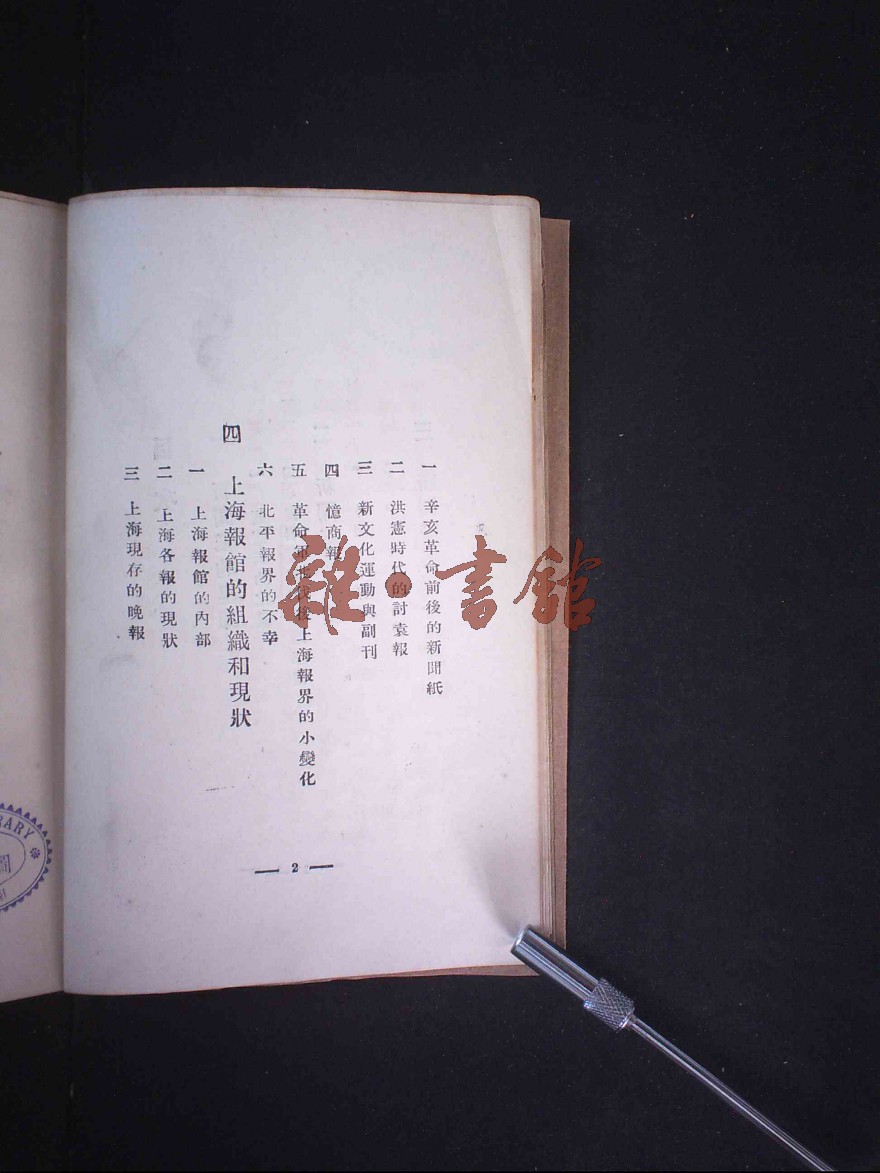 一 辛亥革命前後的新聞紙
二 洪憲時代的討袁報
三 新文化運動與副刊
四 憶商報
五 革命軍北伐後上海報界的小變化
六 北平報界的不幸
四 上海報館的組織和現狀
一 上海報館的內部
二 上海各報的現狀
三 上海現存的晚報
— 2 —
雜·書館
RARY